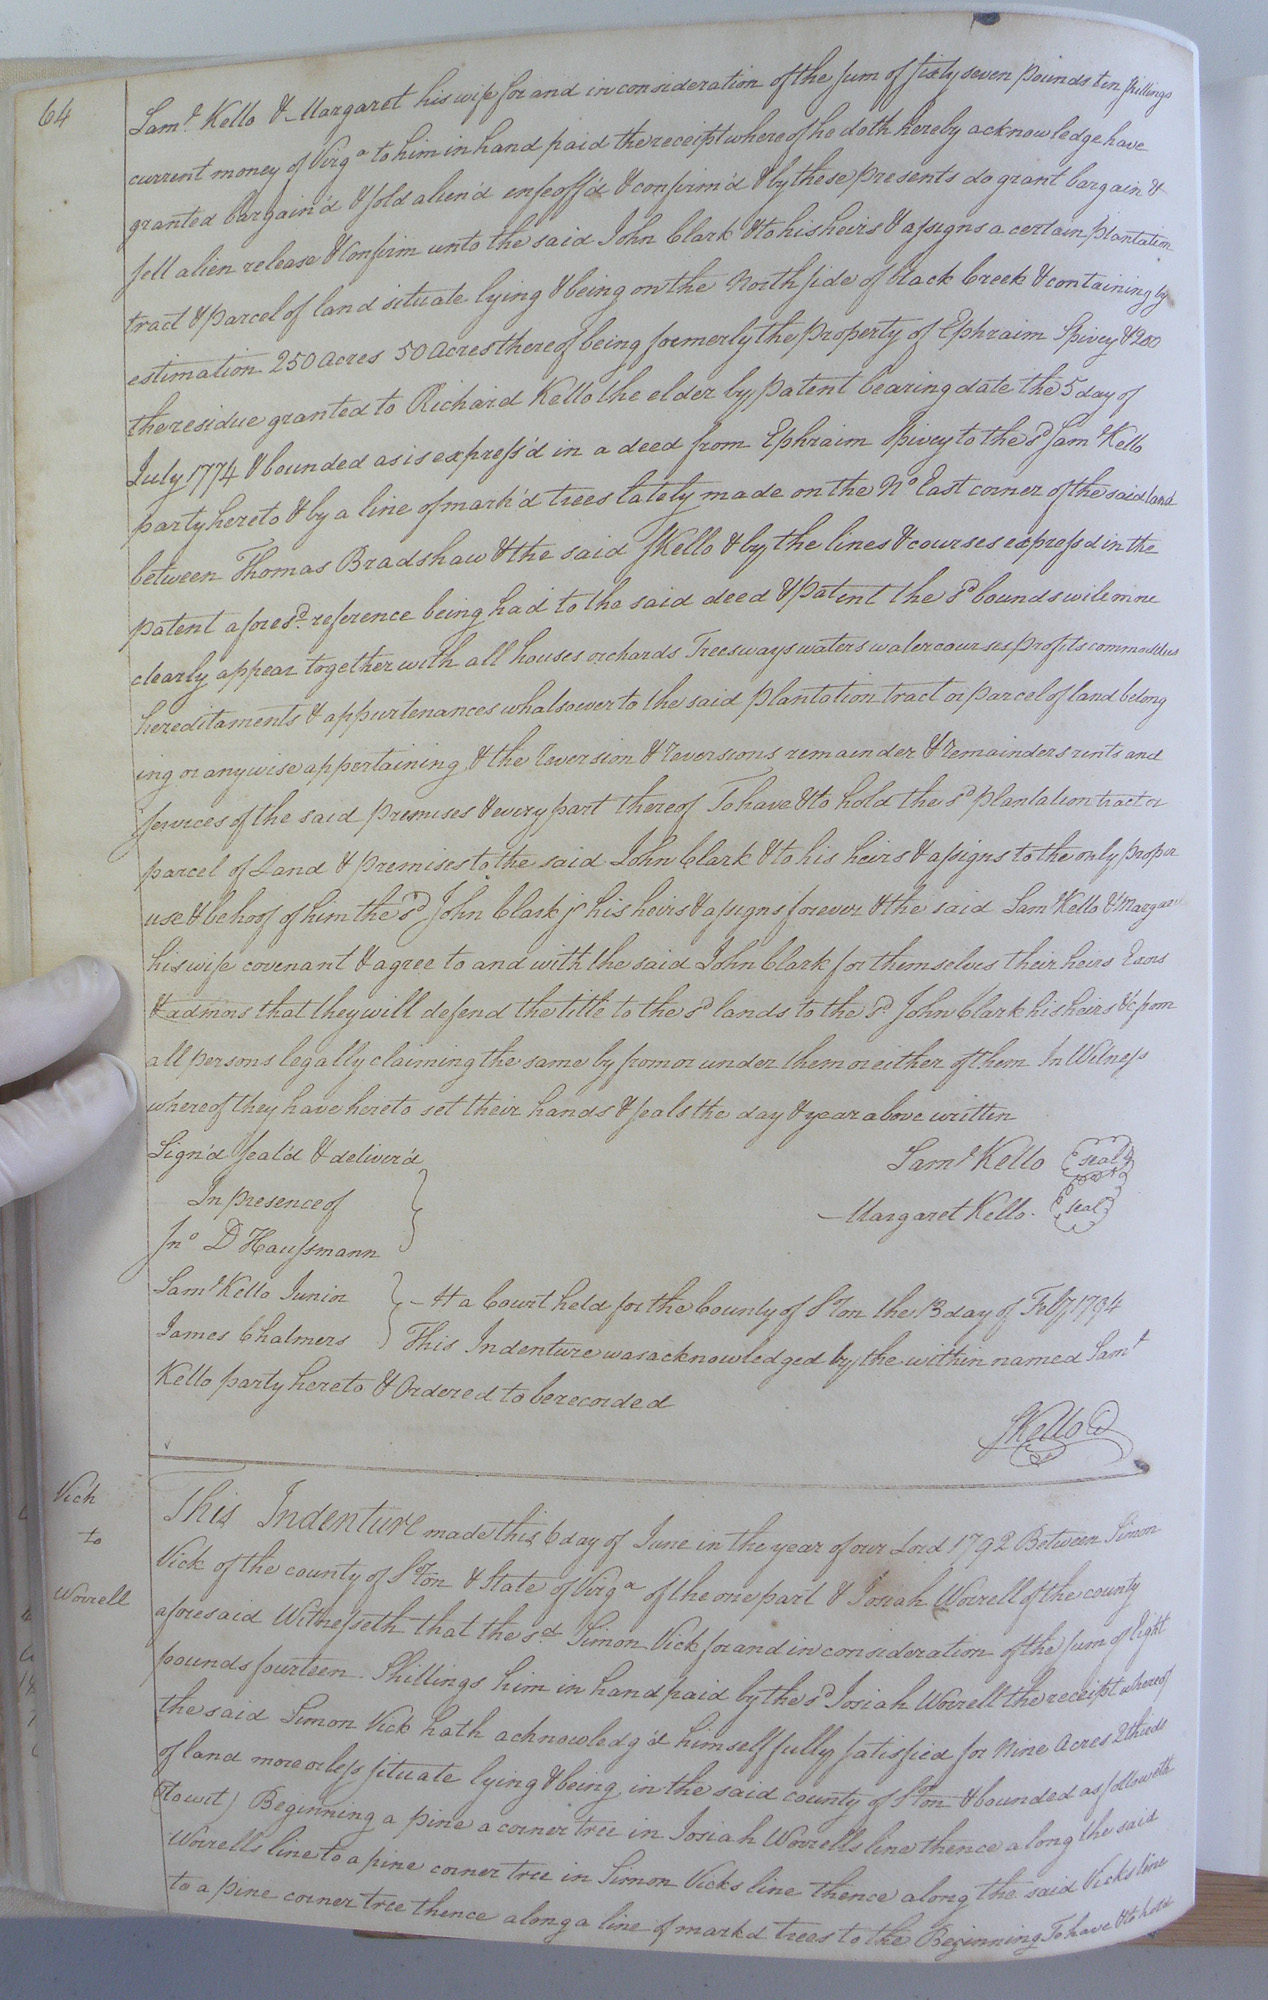 64
Sam.l Kello & Margaret his wife for and in consideration of the sum of sixty seven pounds ten shillings
current money of Virg.a to him in hand paid the receipt whereof he doth hereby acknowledge have
granted bargain'd & sold alien'd enfeoff'd & confirm'd & by these presents do grant bargain &
sell alien release & confirm unto the said John Clark & to his heirs & assigns a certain plantation
tract & parcel of land situate lying & being on the North side of Black Creek & containing by
estimation 250 acres 50 acres thereof being formerly the property of Ephraim Spivey & 200
the residue granted to Richard Kello the elder by patent bearing date the 5 day of
July 1774 & bounded as is express'd in a deed from Ephraim Spivey to the s.d Sam.l Kello
party hereto & by a line of mark'd trees lately made on the N.o East corner of the said land
between Thomas Bradshaw & the said SKello & by the lines & courses express'd in the
patent afores.d reference being had to the said deed & patent the s.d bounds will more
clearly appear together with all houses orchards Trees ways waters watercourses profits commodities
hereditaments & appurtenances whatsoever to the said plantation tract or parcel of land belong
ing or any wise appertaining & the reversion & reversions remainder & remainders rents and
services of the said premises & every part thereof To have & to hold the s.d plantation tract or
parcel of Land & premises to the said John Clark & to his heirs & assigns to the only proper
use & behoof of him the s.d John Clark jr his heirs & assigns forever & the said Sam.l Kello & Margaret
his wife covenant & agree to and with the said John Clark for themselves their heirs Exors
& admors that they will defend the title to the s.d lands to the s.d John Clark his heirs &c from
all persons legally claiming the same by from or under them or either of them In Witness
whereof they have hereto set their hands & seals the day & year above written
Sign'd seal'd & deliver'd
Sam.l Kello seal
In presence of
Margaret Kello seal
Jn.o D Haussmann
Sam.l Kello Junior
At a Court held for the County of S.oton the 13 day of Feb.y 1794
James Chalmers
This Indenture was acknowledged by the within named Sam.l
Kello party hereto & Ordered to be recorded
SKello
Vick
to
Worrell
This Indenture made this 6 day of June in the year of our Lord 1792 Between Simon
Vick of the county of S.oton & State of Virg.a of the one part & Josiah Worrell of the county
aforesaid Witnesseth that the s.d Simon Vick for and in consideration of the sum of Eight
pounds fourteen Shillings him in hand paid by the s.d Josiah Worrell the receipt whereof
the said Simon Vick hath acknowledg'd himself fully satisfied for Nine Acres 2 thirds
of land more or less situate lying & being in the said county of S.oton & bounded as followeth
(towit) Beginning a pine a corner tree in Josiah Worrells line thence along the said
Worrells line to a pine corner tree in Simon Vicks line thence along the said Vicks line
to a pine corner tree thence along a line of markd trees to the Beginning To have & to hold